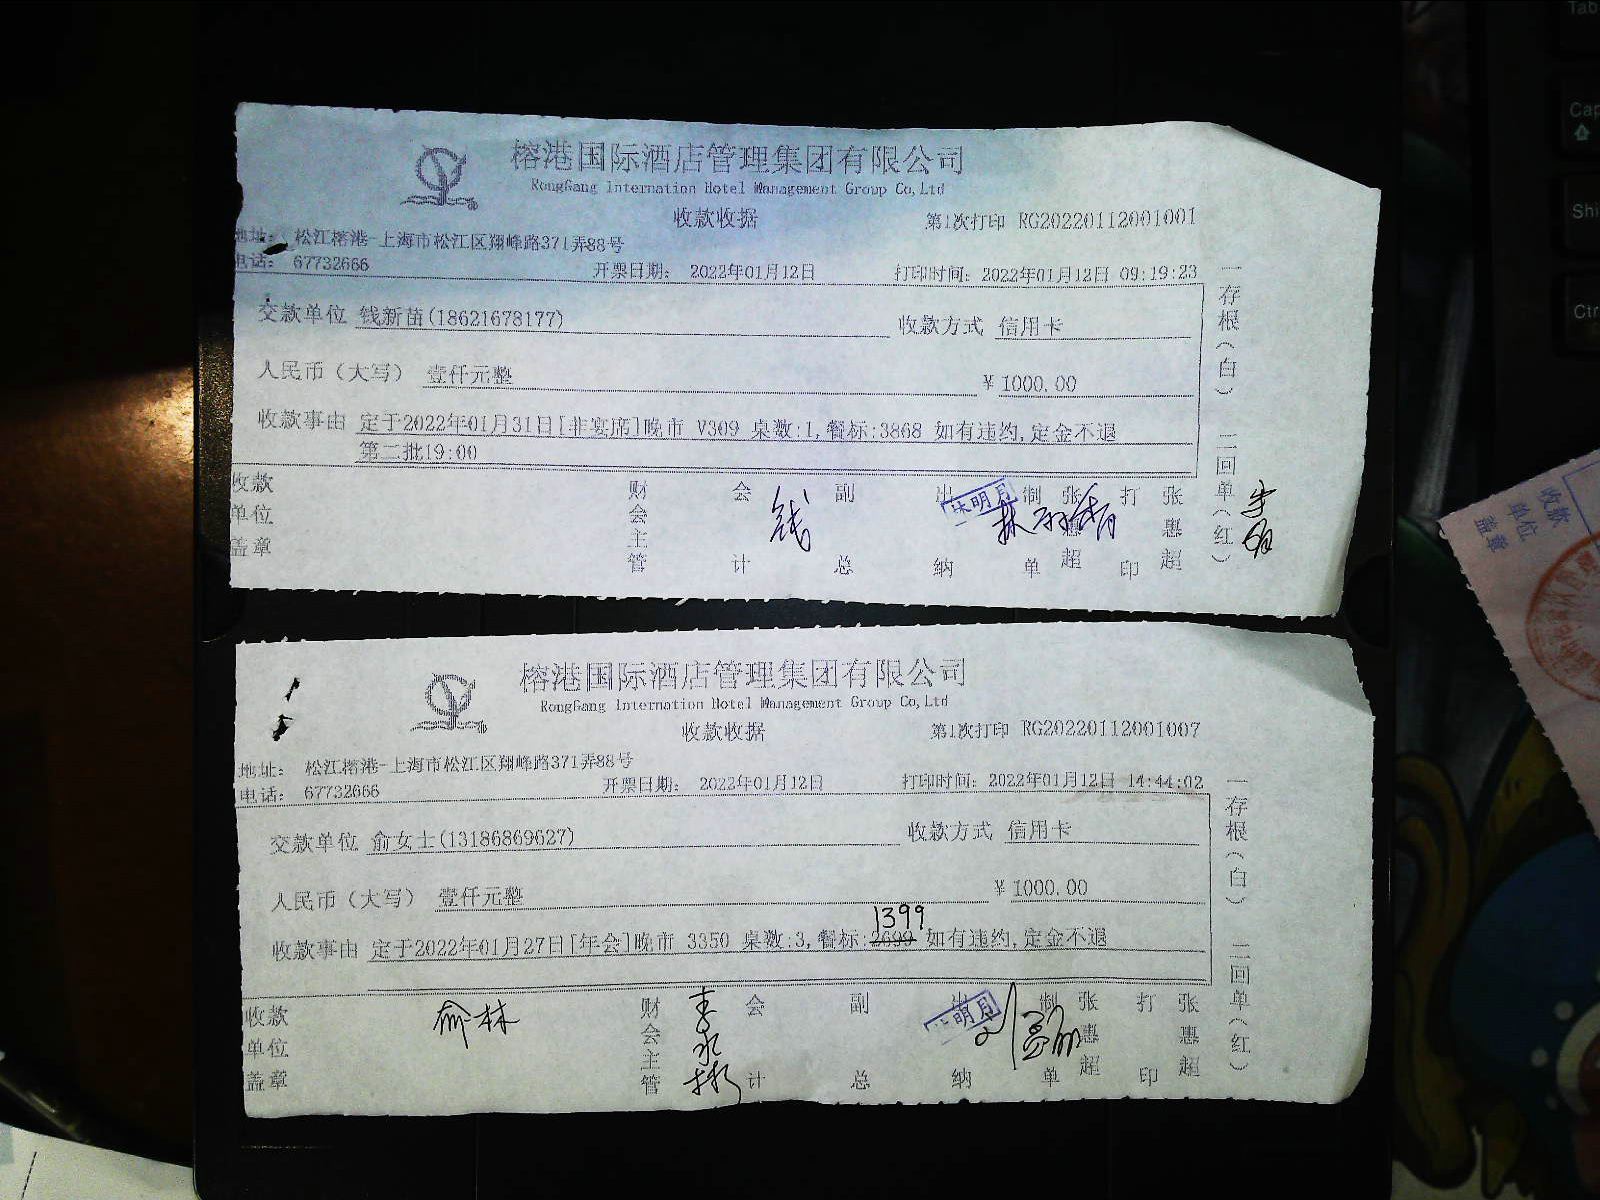 榕港国际酒店管理集团有限公司
RongGang Internation Hotel Management Group Co,Ltd
收款收据
第1次打印 RG20220112001001
地址: 松江榕港-上海市松江区翔峰路371弄88号
电话: 67732666
开票日期: 2022年01月12日
打印时间: 2022年01月12日 09:19:23
交款单位 钱新苗(18621678177)
收款方式 信用卡
人民币（大写） 壹仟元整
¥ 1000.00
收款事由 定于2022年01月31日[非宴席]晚市 V309 桌数:1,餐标:3868 如有违约,定金不退
第二批19:00
收款单位盖章
财会主管
会计
钱
副总
出纳
制单
张惠超
打印
张惠超
一存根（白）
二回单（红）
榕港国际酒店管理集团有限公司
RongGang Internation Hotel Management Group Co,Ltd
收款收据
第1次打印 RG20220112001007
地址: 松江榕港-上海市松江区翔峰路371弄88号
电话: 67732666
开票日期: 2022年01月12日
打印时间: 2022年01月12日 14:44:02
交款单位 俞女士(13186869627)
收款方式 信用卡
人民币（大写） 壹仟元整
¥ 1000.00
1399
收款事由 定于2022年01月27日[年会]晚市 3350 桌数:3,餐标:2699 如有违约,定金不退
收款单位盖章
俞林
财会主管
会计
副总
出纳
制单
张惠超
打印
张惠超
一存根（白）
二回单（红）
收款
单位
盖章
Tab
Cap
Shi
Ctr